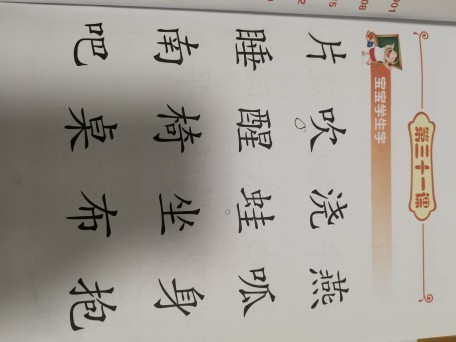 第三十一课
宝宝学生字
片 吹 浇 燕
睡 醒 蛙 呱
南 椅 坐 身
吧 桌 布 抱